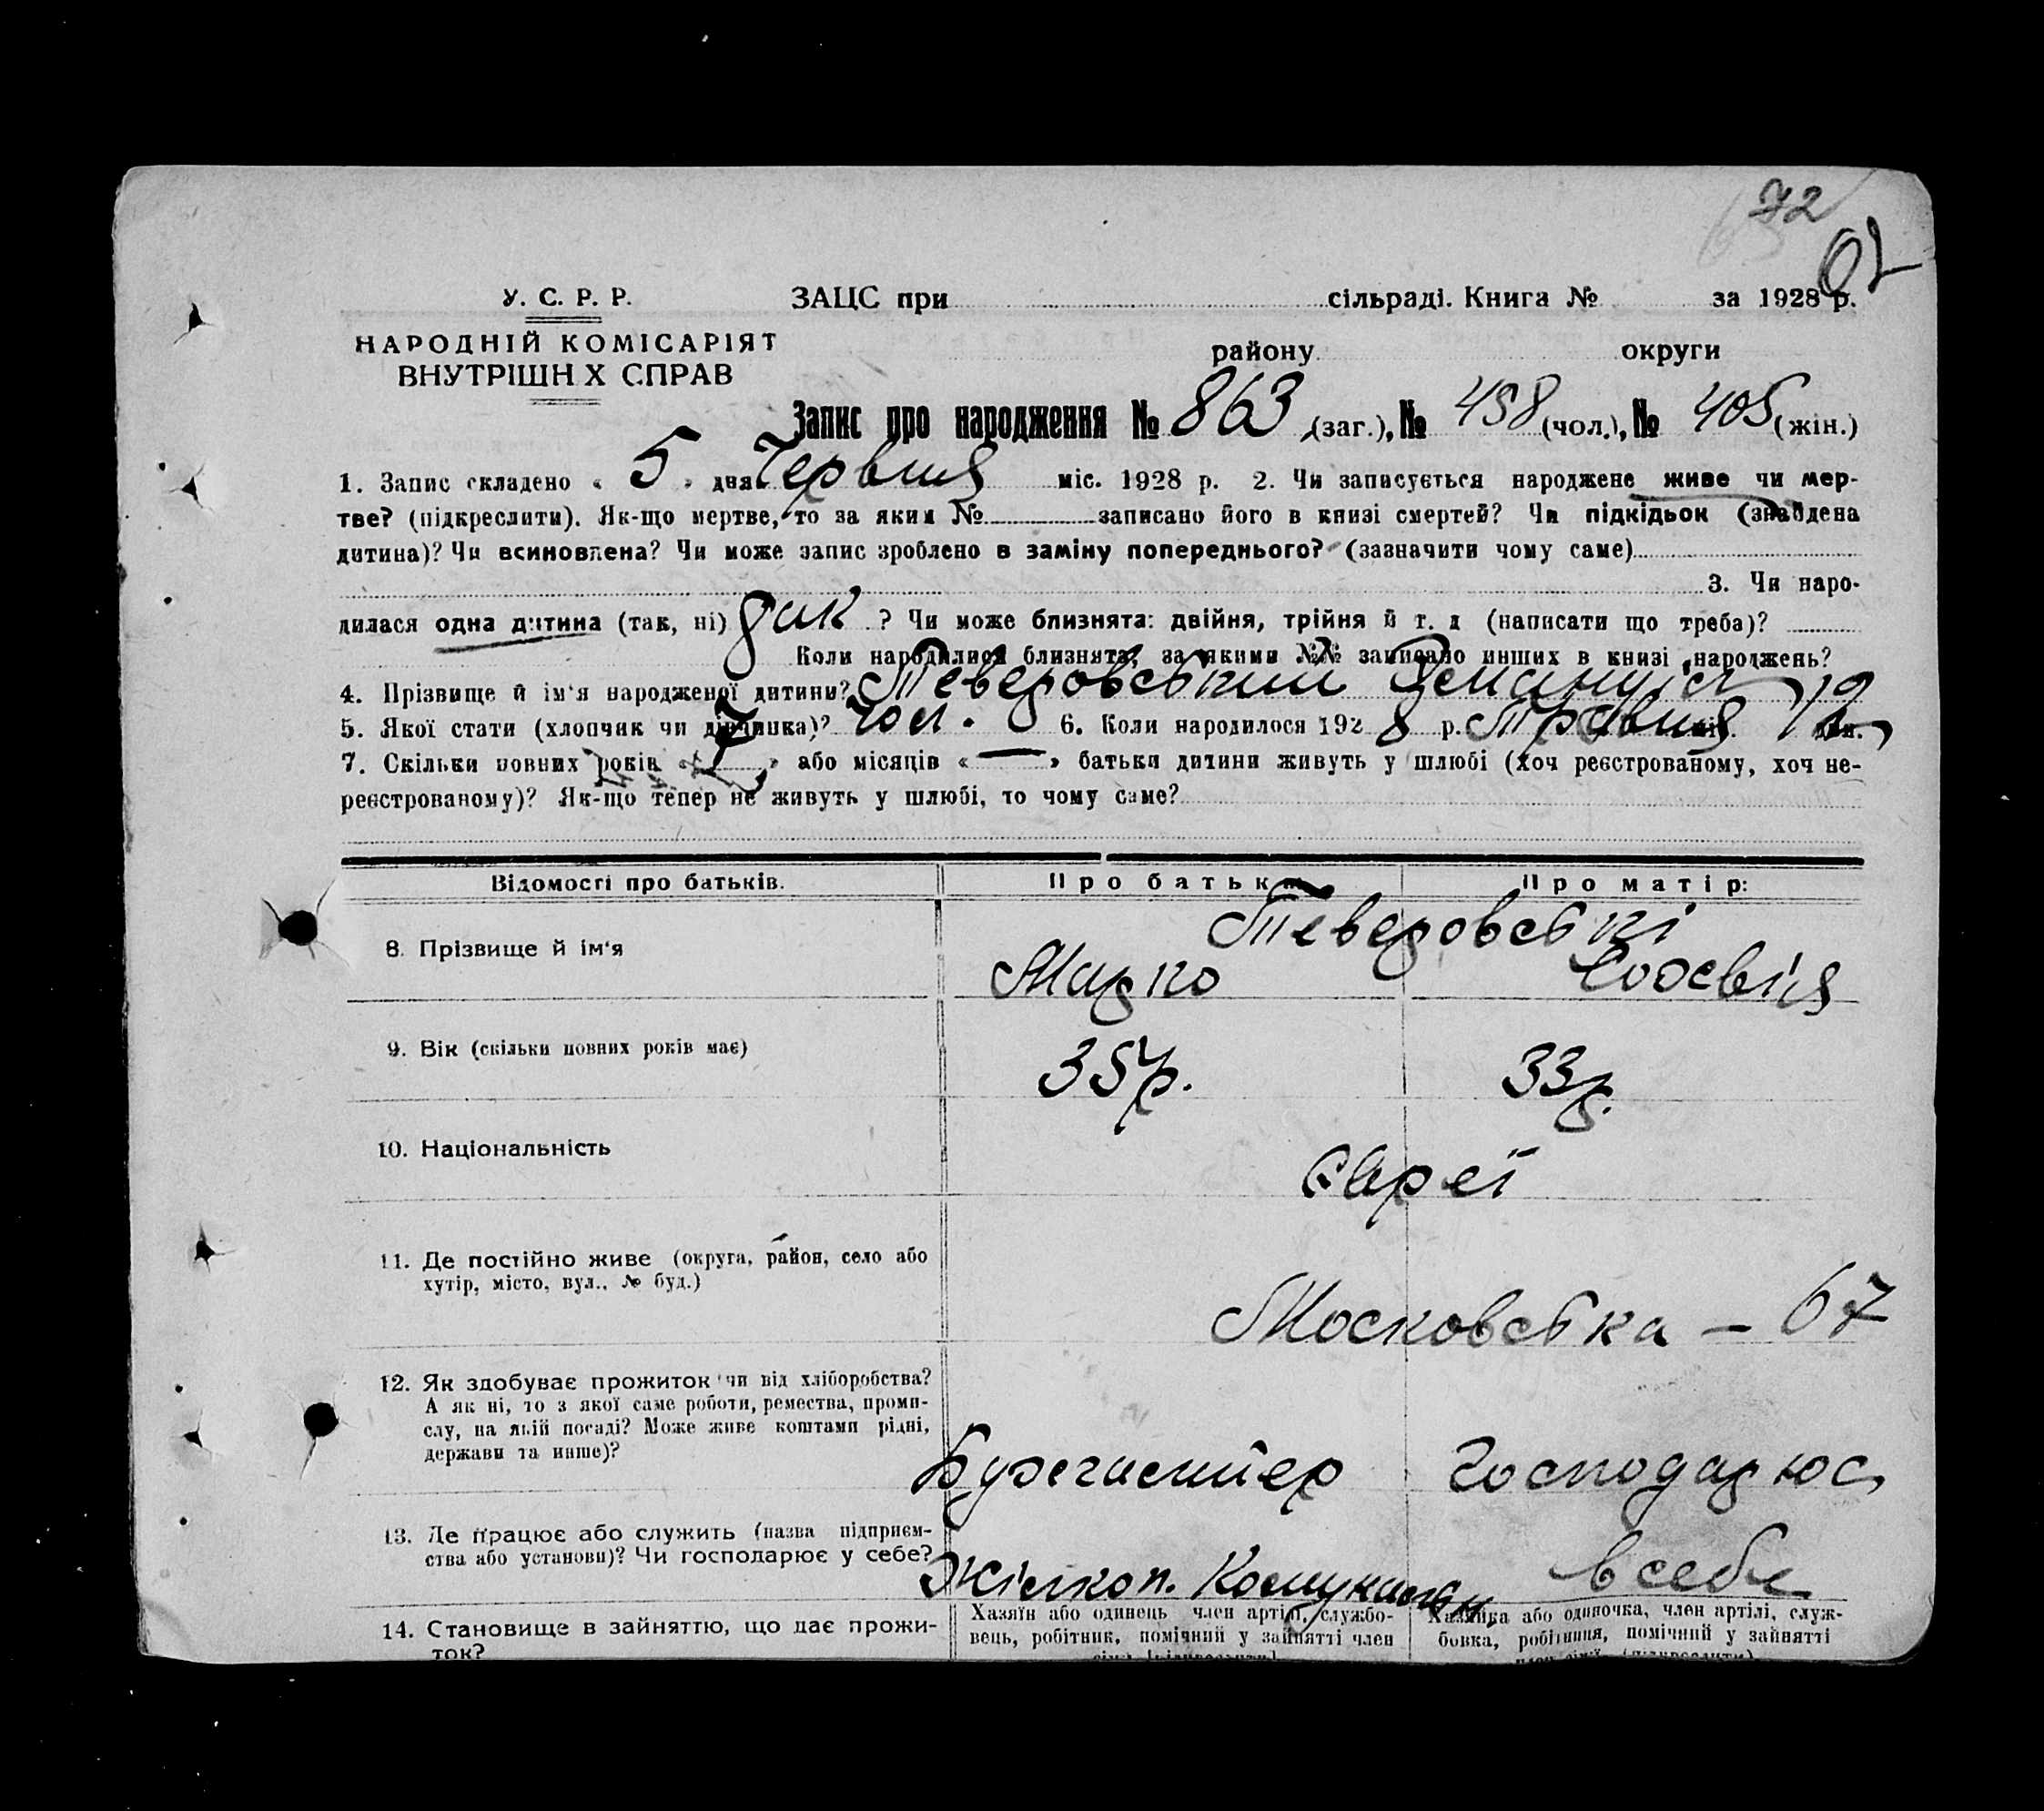 72
У. С. Р. Р.
ЗАЦС при сільраді. Книга № за 1928 р.
НАРОДНІЙ КОМІСАРІЯТ
ВНУТРІШН Х СПРАВ
району округи
Запис про народження № 863 (заг.), № 458 (чол.), № 405 (жін.)
1. Запис складено « 5 » дня Червня міс. 1928 р. 2. Чи записується народжене живе чи мер-
тве? (підкреслити). Як-що мертве, то за яким № записано його в книзі смертей? Чи підкідьок (знайдена
дитина)? Чи всиновлена? Чи може запис зроблено в заміну попереднього? (зазначити чому саме)
3. Чи наро-
дилася одна дитина (так, ні) так ? Чи може близнята: двійня, трійня й т. д (написати що треба)?
Коли народилися близнята, за якими №№ записано инших в книзі народжень?
4. Прізвище й ім'я народженої дитини? Теверовський
5. Якої стати (хлопчик чи дівчинка)? Чол. 6. Коли народилося 192 8 р. Травня міс. 19 дня.
7. Скільки повних років « 7 » або місяців « — » батьки дитини живуть у шлюбі (хоч реєстрованому, хоч не-
реєстрованому)? Як-що тепер не живуть у шлюбі, то чому саме?
Відомості про батьків. Про батька Про матір:
Теверовські
8. Прізвище й ім'я Марко
9. Вік (скільки повних років має) 35 р. 33 р.
10. Національність Євреї
11. Де постійно живе (округа, район, село або
хутір, місто, вул., № буд.)
Московська – 67
12. Як здобуває прожиток чи від хліборобства?
А як ні, то з якої саме роботи, ремества, проми-
слу, на якій посаді? Може живе коштами рідні,
держави та инше)?
Бухгалтер Господарює
13. Де працює або служить (назва підприєм-
ства або установи)? Чи господарює у себе?
Жілкоп. в себе
14. Становище в зайняттю, що дає прожи-
ток?
Хазяїн або одинець член артілі, службо-
вець, робітник, помічний у зайнятті член
Хазяйка або одиночка, член артілі, служ-
бовка, робітниця, помічний у зайнятті